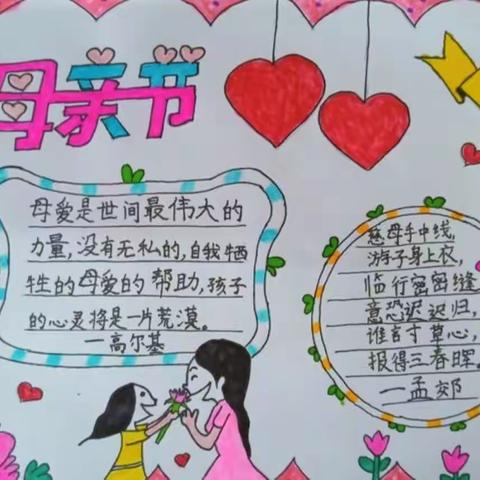 母亲节
母爱是世间最伟大的
力量,没有无私的,自我牺
牲的母爱的帮助,孩子
的心灵将是一片荒漠。
一高尔基
慈母手中线,
游子身上衣,
临行密密缝
意恐迟迟归,
谁言寸草心,
报得三春晖。
一孟郊